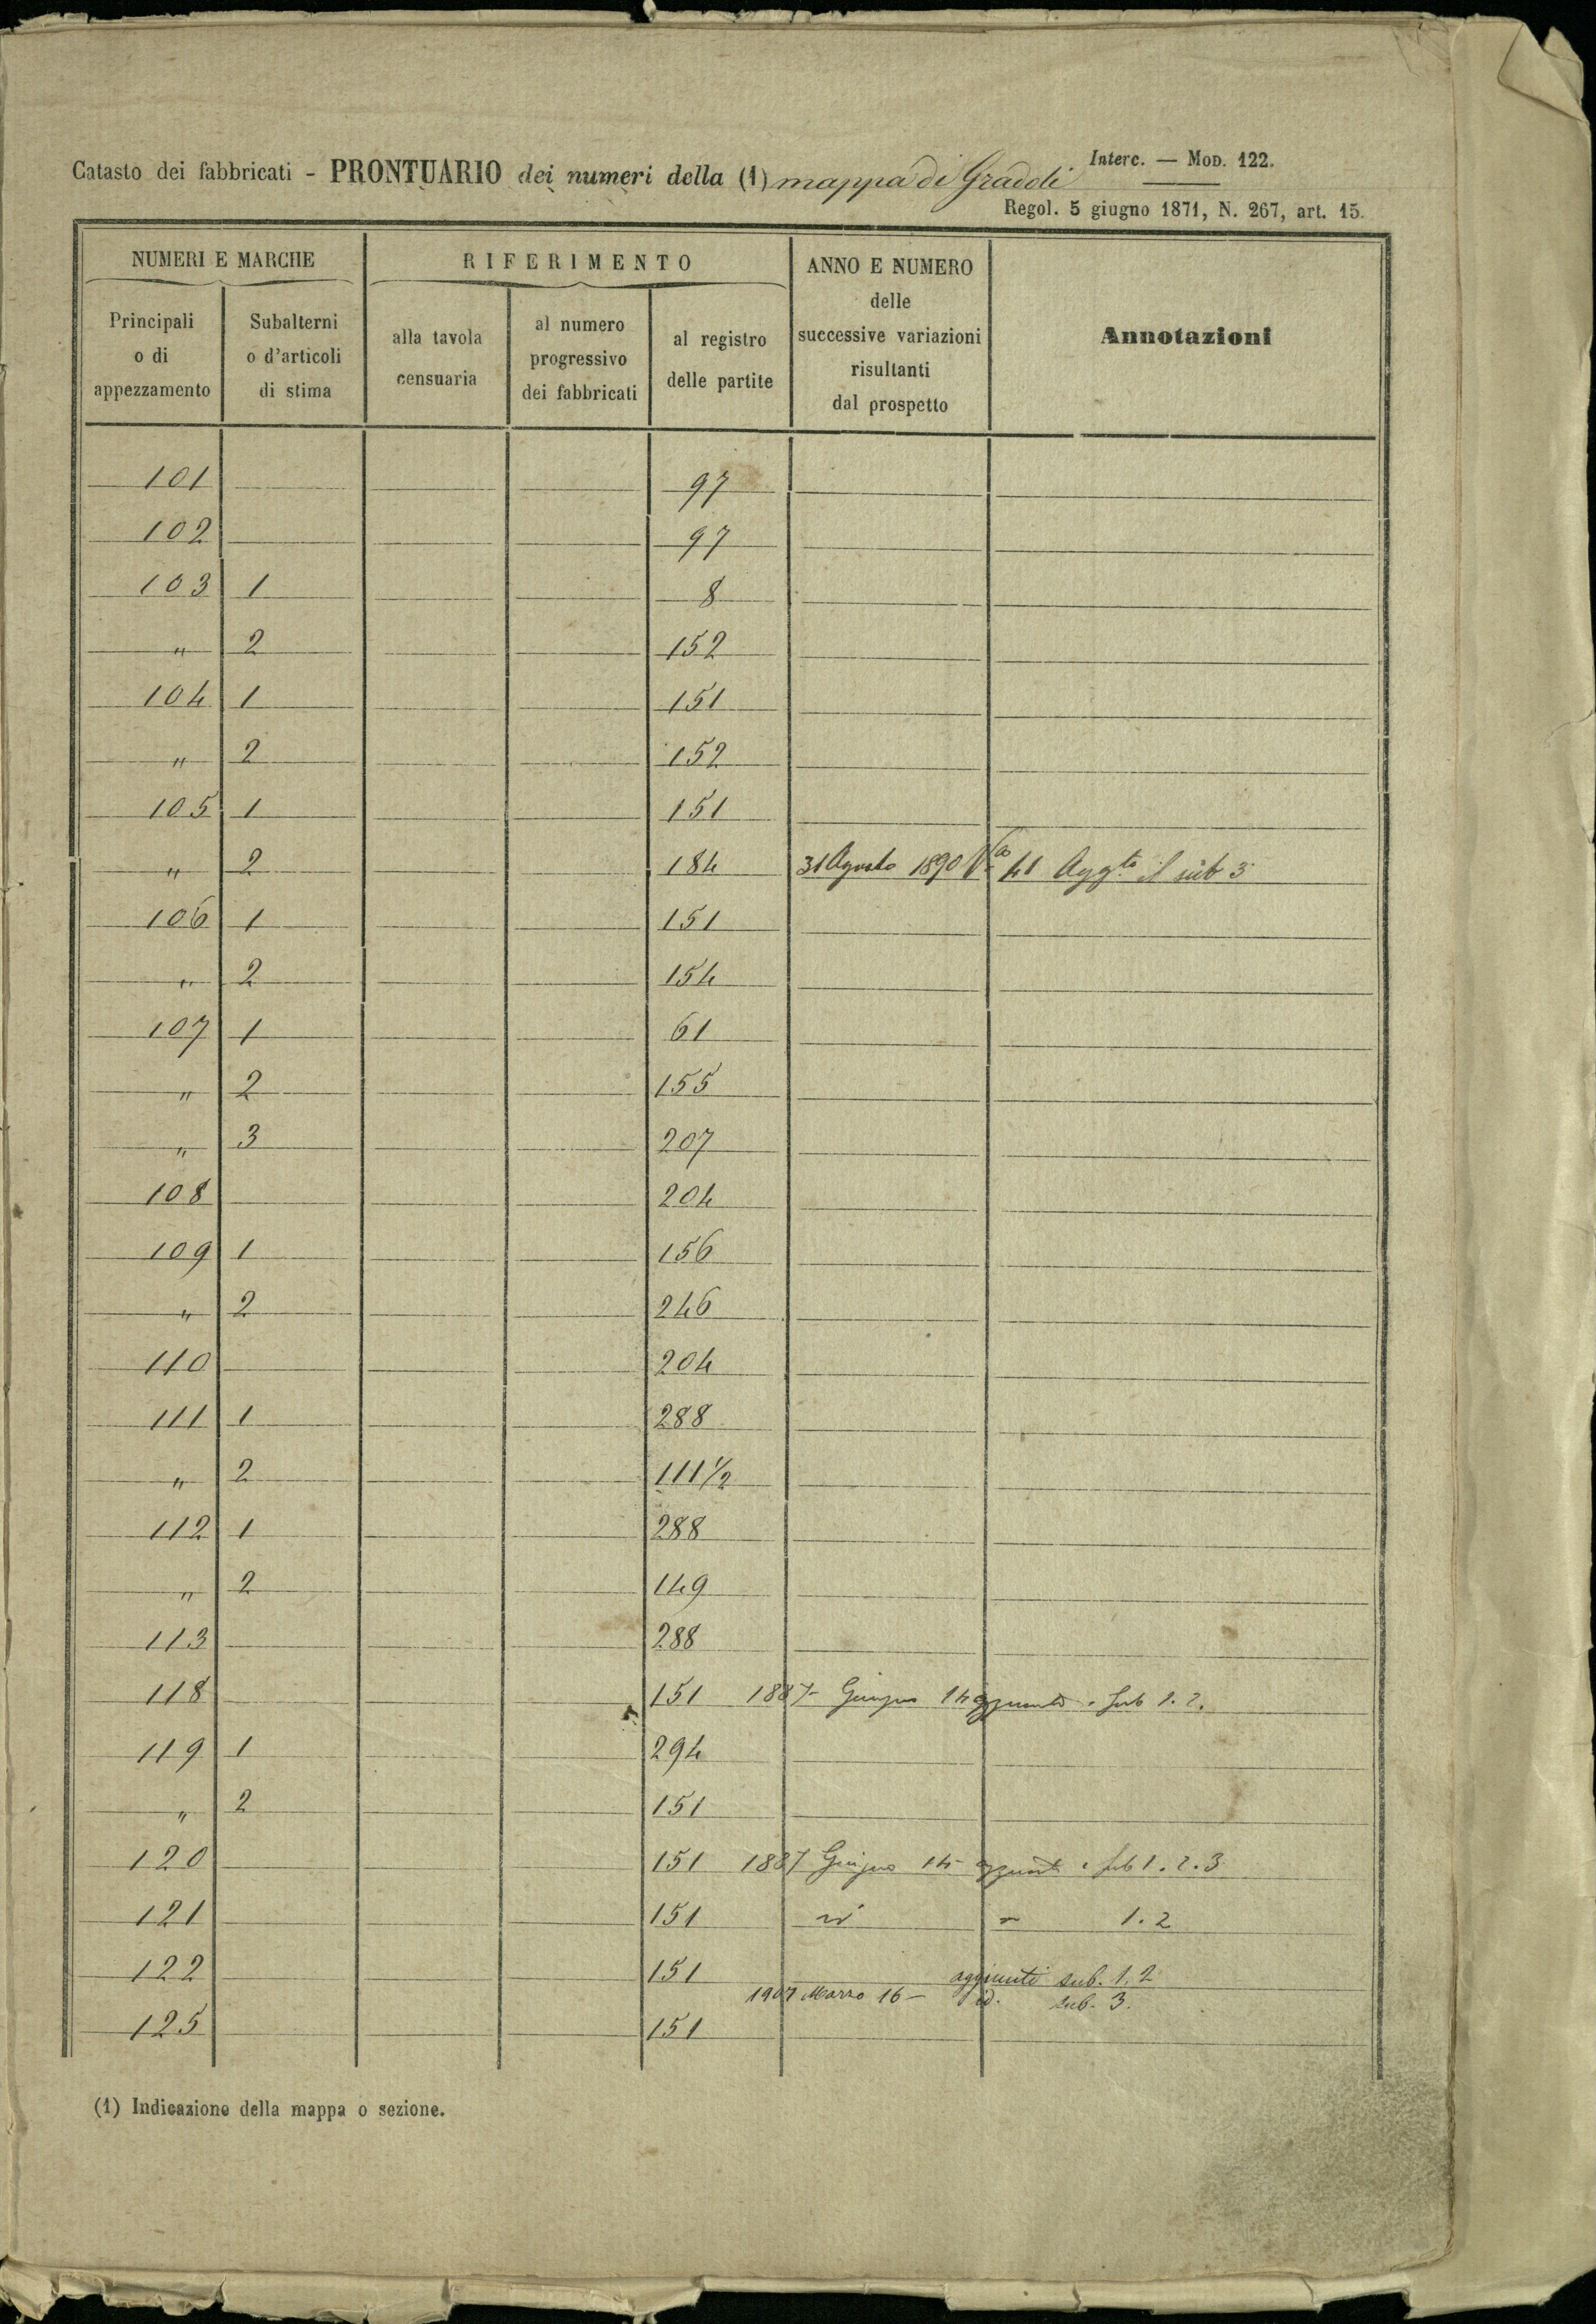 Catasto dei fabbricati - PRONTUARIO dei numeri della (1) mappa di Gradoli
Interc. — Mod. 122.
Regol. 5 giugno 1871, N. 267, art. 15.
NUMERI E MARCHE
RIFERIMENTO
ANNO E NUMERO
delle
successive variazioni
risultanti
dal prospetto
Annotazioni
Principali
o di
appezzamento
Subalterni
o d'articoli
di stima
alla tavola
censuaria
al numero
progressivo
dei fabbricati
al registro
delle partite
101 97
102 97
103 1 8
" 2 152
104 1 151
" 2 152
105 1 151
" 2 184 31 Agosto 1890 Va 41 Aggto il sub 3
106 1 151
" 2 154
107 1 61
" 2 155
" 3 207
108 204
109 1 156
" 2 246
110 204
111 1 288
" 2 111 1/2
112 1 288
" 2 149
113 288
118 151 1887 Giugno 14 Sub 1. 2.
119 1 294
" 2 151
120 151 1887 Giugno 14 Sub 1. 2. 3
121 151 1. 2
122 151 aggiunti sub. 1. 2
1907 Marzo 16 - id. sub. 3.
125 151
(1) Indicazione della mappa o sezione.